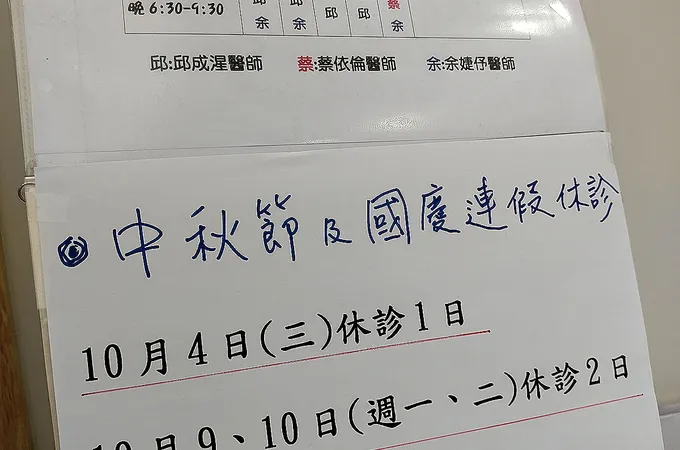 晚 6:30-9:30 邱 邱 邱 邱 蔡
余 余 余
邱:邱成渥醫師 蔡:蔡依倫醫師 余:余婕伃醫師
中秋節及國慶連假休診
10月4日(三)休診1日
10月9、10日(週一、二)休診2日